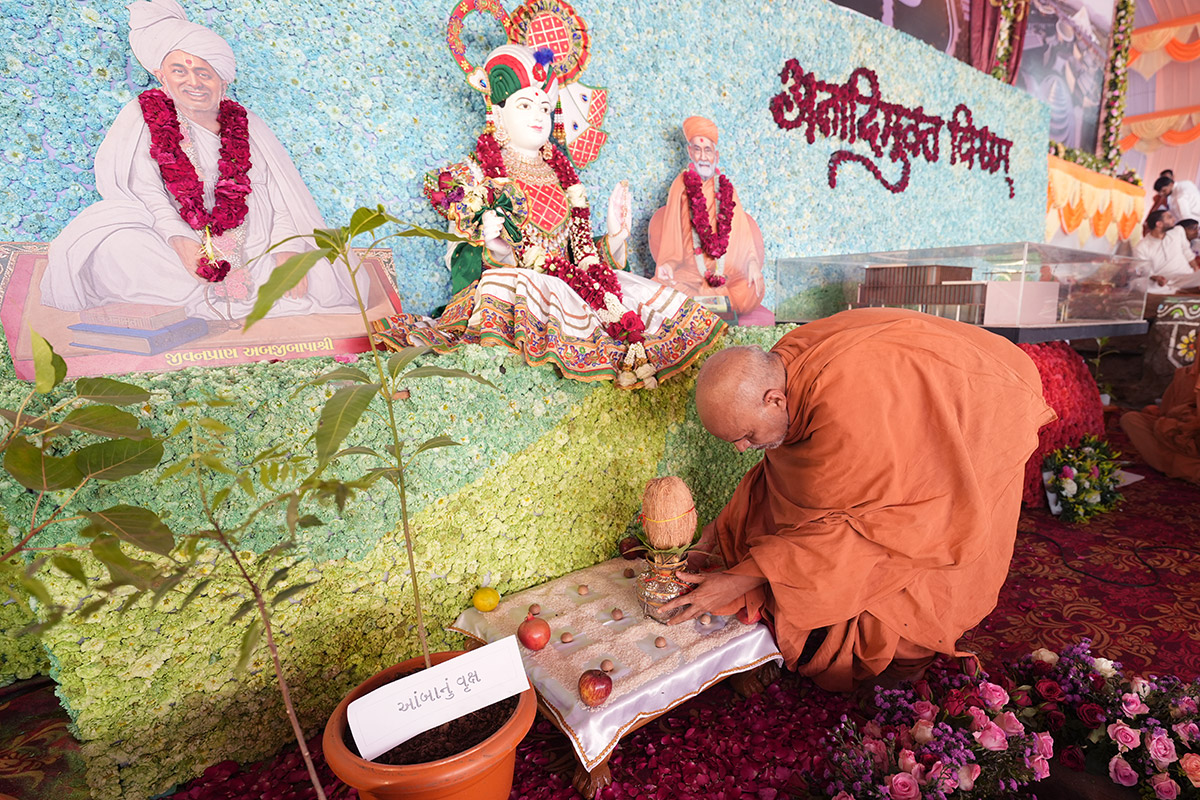 અનાદિમુક્ત વિશ્વમ્
જીવનપ્રાણ અબજીબાપાશ્રી
આંબાનું વૃક્ષ